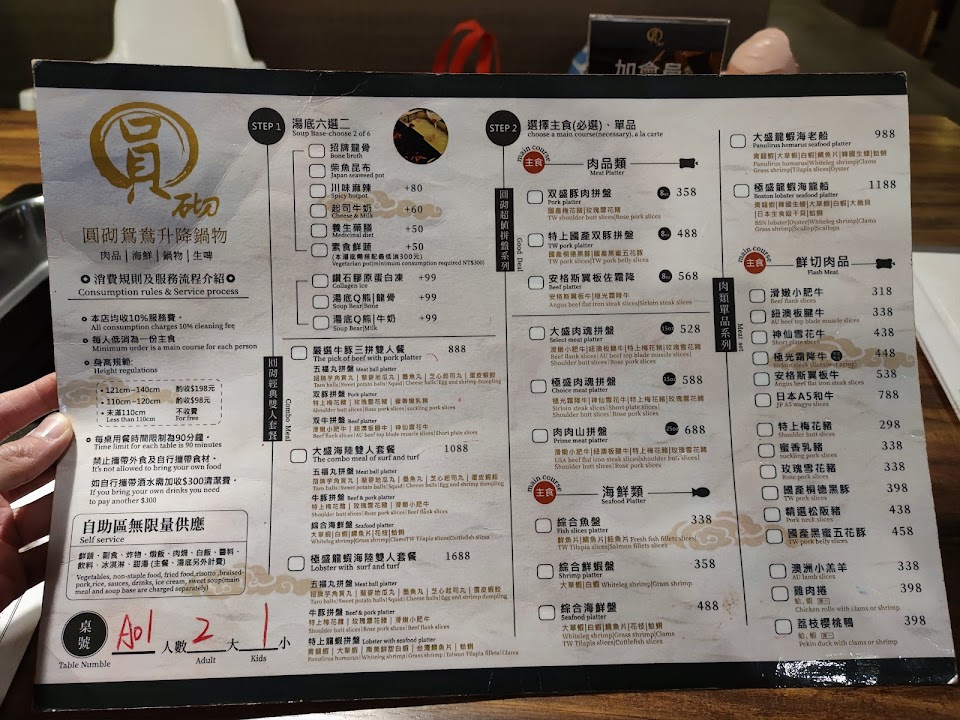 加會員
員砌
圓砌鴛鴦升降鍋物
肉品|海鮮|鍋物|生啤
消費規則及服務流程介紹
Consumption rules & Service process
本店均收10%服務費。
All consumption charges 10% cleaning fee
每人低消為一份主食
Minimum order is a main course for each person
身高規範
Height regulations
121cm~140cm 酌收$198元
110cm~120cm 酌收$98元
未滿110cm 不收費
Less than 110cm For free
每桌用餐時間限制為90分鐘。
Time limit for each table is 90 minutes
禁止攜帶外食及自行攜帶食材。
It's not allowed to bring your own food
如自行攜帶酒水需加收$300清潔費。
If you bring your own drinks you need
to pay another $300
自助區無限量供應
Self service
鮮蔬、副食、炸物、燉飯、肉燥、白飯、醬料、
飲料、冰淇淋、甜湯 (主餐、湯底另外計費)
Vegetables, non-staple food, fried food,risotto ,braised
pork,rice, sauces, drinks, ice cream, sweet soup(main
meal and soup base are charged separately)
桌號
Table Numble
A01 人數 2 大 1 小
Adult Kids
STEP 1 湯底六選二
Soup Base-choose 2 of 6
招牌龍骨
Bone broth
柴魚昆布
Japan seaweed pot
川味麻辣 +80
Spicy hotpot
起司牛奶 +60
Cheese & Milk
養生藥膳 +50
Medicinal diet
素食鮮蔬 +50
(本湯底需搭配最低消300元)
Vegetarian pot(minimum consumption required NT$300)
鑽石膠原蛋白凍 +99
Collagen ice
湯底Q熊|龍骨 +99
Soup Bear|Bone
湯底Q熊|牛奶 +99
Soup Bear|Milk
圓砌經典雙人套餐
Combo Meal
嚴選牛豚三拼雙人餐 888
The pick of beef with pork platter
五福丸拼盤 Meat ball platter
招牌芋角貢丸 | 藜麥地瓜丸 | 墨魚丸 | 芝心起司丸 | 蛋皮蝦餃
Taro balls|Sweet potato balls|Squid|Cheese balls|Egg and shrimp dumpling
双豚拼盤 Pork platter
特上梅花豬 | 玫瑰雪花豬 | 蜜香嫩乳豬
Shoulder butt slices|Rose pork slices| suckling pork slices
双牛拼盤 Beef platter
滑嫩小肥牛 | 紐澳板腱牛 | 神仙雪花牛
Beef flank slices|AU beef top blade muscle slices|Short plate slices
大盛海陸雙人套餐 1088
The combo meal of surf and turf
五福丸拼盤 Meat ball platter
招牌芋角貢丸 | 藜麥地瓜丸 | 墨魚丸 | 芝心起司丸 | 蛋皮蝦餃
Taro balls|Sweet potato balls|Squid|Cheese balls|Egg and shrimp dumpling
牛豚拼盤 Beef & pork platter
特上梅花豬 | 玫瑰雪花豬 | 滑嫩小肥牛
Shoulder butt slices | Rose pork slices | Beef flank slices
綜合海鮮盤 Seafood platter
大草蝦|白蝦|鯛魚片|花枝|蛤蜊
極盛龍蝦海陸雙人套餐 1688
Lobster with surf and turf
五福丸拼盤 Meat ball platter
招牌芋角貢丸 | 藜麥地瓜丸 | 墨魚丸 | 芝心起司丸 | 蛋皮蝦餃
Taro balls|Sweet potato balls|Squid|Cheese balls|Egg and shrimp dumpling
牛豚拼盤 Beef & pork platter
特上梅花豬 | 玫瑰雪花豬 | 滑嫩小肥牛
Shoulder butt slices | Rose pork slices | Beef flank slices
特上龍蝦拼盤 Lobster with seafood platter
青龍蝦 | 大草蝦 | 南美鮮甜白蝦 | 台灣鯛魚片 | 蛤蜊
Panulirus homarus | Whiteleg shrimp| Grass shrimp | Taiwan Tilapia fillets| Clams
STEP 2 選擇主食(必選)、單品
choose a main course(necessary), a la carte
圓砌超值拼盤系列
Good Deal
main course 主食 肉品類
Meat Platter
双盛豚肉拼盤 8oz 358
Pork platter
國產梅花豬|玫瑰雪花豬
TW shoulder butt slices|Rose pork slices
特上國產双豚拼盤 8oz 488
TW pork platter
國產桐德黑豚|國產黑蜜五花豚
TW pork slices|TW pork belly slices
安格斯翼板佐霜降 8oz 568
Beef platter
安格斯翼板牛|極光霜降牛
Angus beef flat iron steak slices|Sirloin steak slices
大盛肉魂拼盤 15oz 528
Select meat platter
滑嫩小肥牛|紐澳板腱牛|特上梅花豬|玫瑰雪花豬
Beef flank slices| AU beef top blade muscle slices|
Shoulder butt slices | Rose pork slices
極盛肉魂拼盤 15oz 588
Choice meat platter
極光霜降牛|神仙雪花牛|特上梅花豬|玫瑰雪花豬
Sirloin steak slices|Short plate slices|
Shoulder butt slices | Rose pork slices
肉肉山拼盤 25oz 688
Prime meat platter
滑嫩小肥牛|紐澳板腱牛|神仙雪花牛|特上梅花豬|玫瑰雪花豬
Shoulder butt slices| Rose pork slices
main course 主食 海鮮類
Seafood Platter
綜合魚盤 338
Fish slices platter
鮮魚片|鯛魚片|鮭魚片 Fresh fish fillets slices|
TW Tilapia slices|Salmon fillets slices
綜合鮮蝦盤 358
Shrimp platter
大草蝦|白蝦 Whiteleg shrimp|Grass shrimp
綜合海鮮盤 488
Seafood platter
大草蝦|白蝦|鯛魚片|花枝|蛤蜊
Whiteleg shrimp|Grass shrimp|Clams
TW Tilapia slices|Cuttlefish slices
大盛龍蝦海老船 988
Panulirus homarus seafood platter
青龍蝦|大草蝦|白蝦|鯛魚片|韓國生蠔|蛤蜊
極盛龍蝦海龍船 1188
Boston lobster seafood platter
青龍蝦|韓國生蠔|大草蝦|白蝦|大扇貝
|日本生食級干貝|蛤蜊
BSN lobster|Oyster|Whiteleg shrimp|Clams
Grass shrimp|Scallop|Scallops
肉類單品系列
Meat set
main course 主食 鮮切肉品
Flash Meat
滑嫩小肥牛 318
Beef flank slices
紐澳板腱牛 338
AU beef top blade muscle slices
神仙雪花牛 438
Short plate slices
極光霜降牛 448
Sirloin steak slices
安格斯翼板牛 538
Angus beef flat iron steak slices
日本A5和牛 788
JP A5 wagyu slices
特上梅花豬 298
Shoulder butt slices
蜜香乳豬 338
suckling pork slices
玫瑰雪花豬 338
Rose pork slices
國產桐德黑豚 398
TW pork slices
精選松阪豬 438
Pork neck slices
國產黑蜜五花豚 458
TW pork belly slices
澳洲小羔羊 338
AU lamb slices
雞肉捲 398
Chicken rolls with clams or shrimp
荔枝櫻桃鴨 398
Pekin duck with clams or shrimp